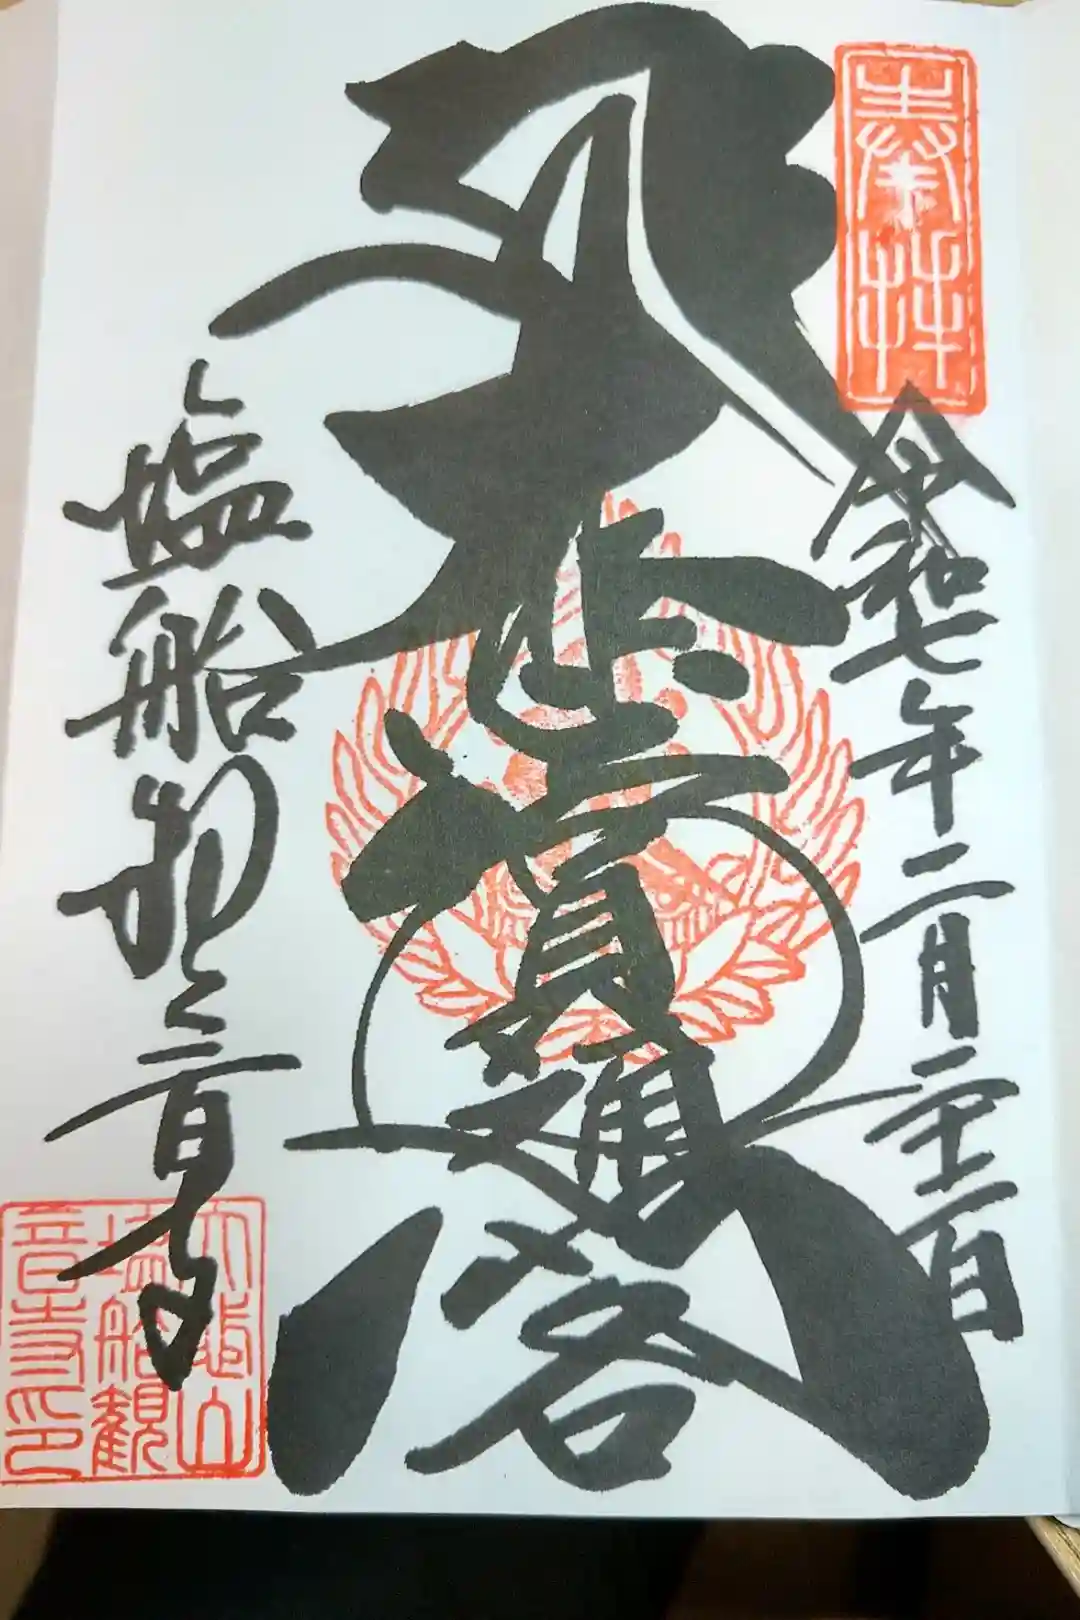 奉拝
令和七年二月二十二日
大悲
塩船観音寺
大悲山
塩船観
音寺印